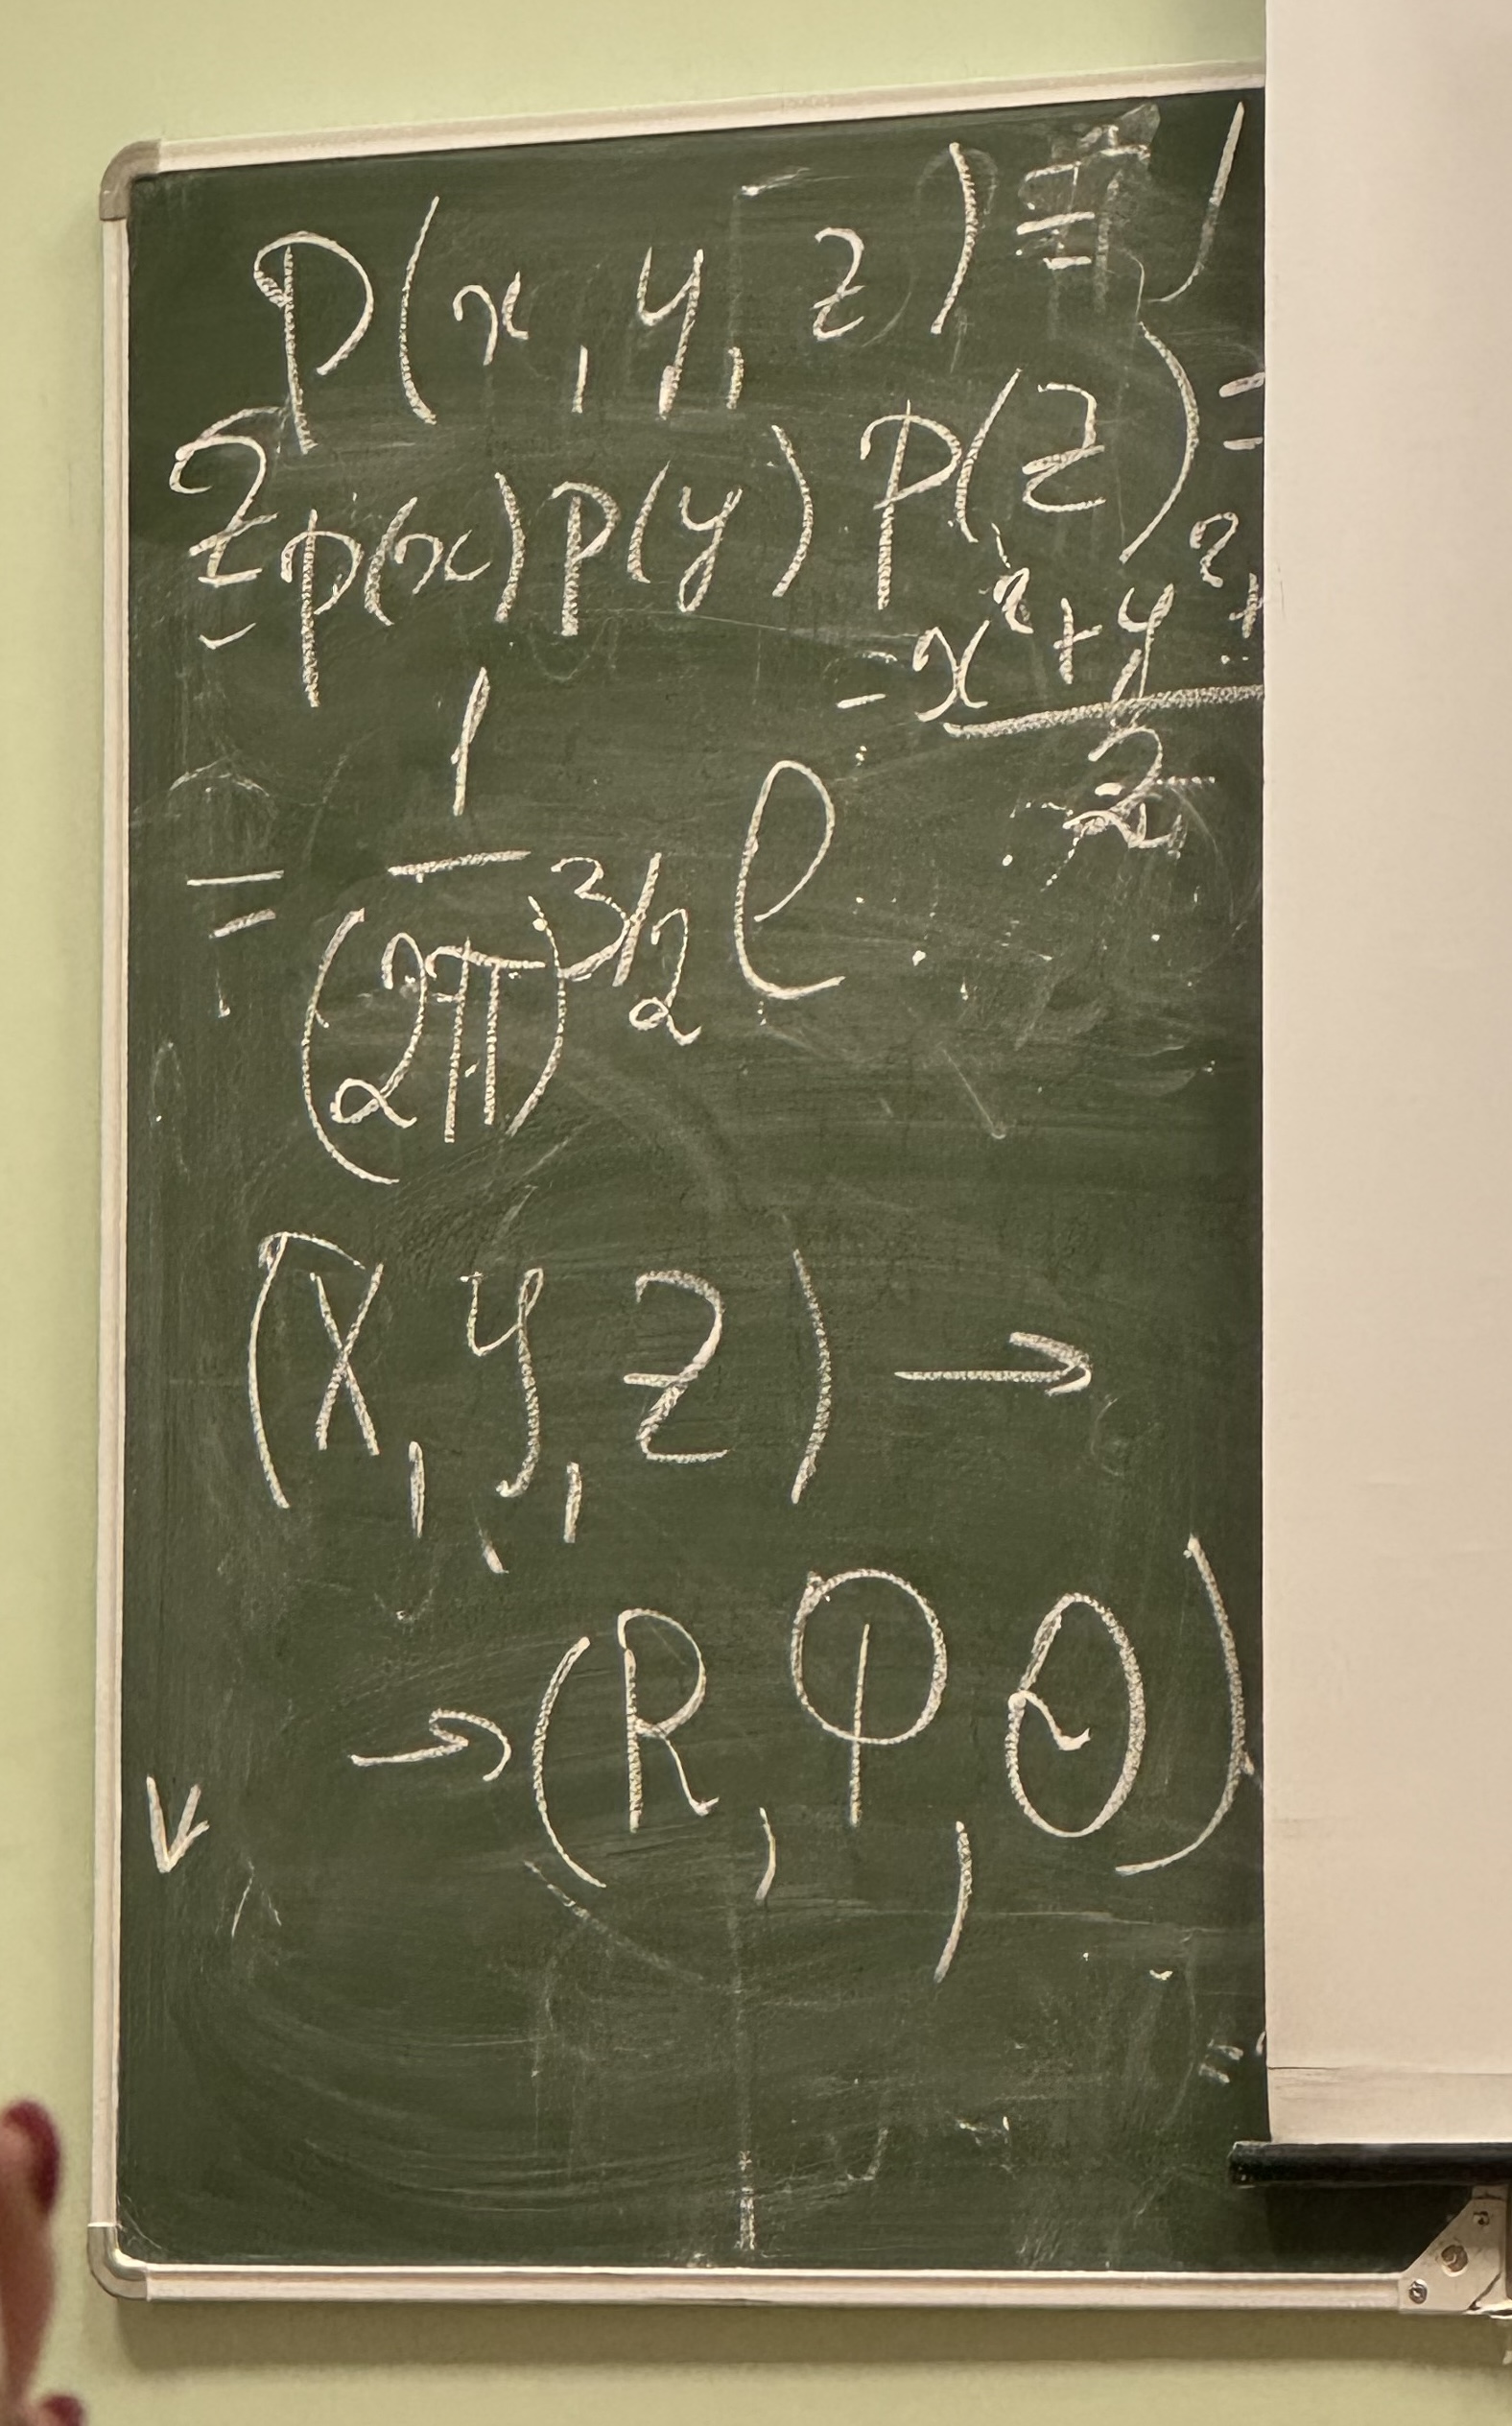 P(x, y, z) =
= p(x) p(y) p(z) =
= 1/(2π)^3/2 e^-(x²+y²+)/2
(X, Y, Z) →
→ (R, Φ, Θ)